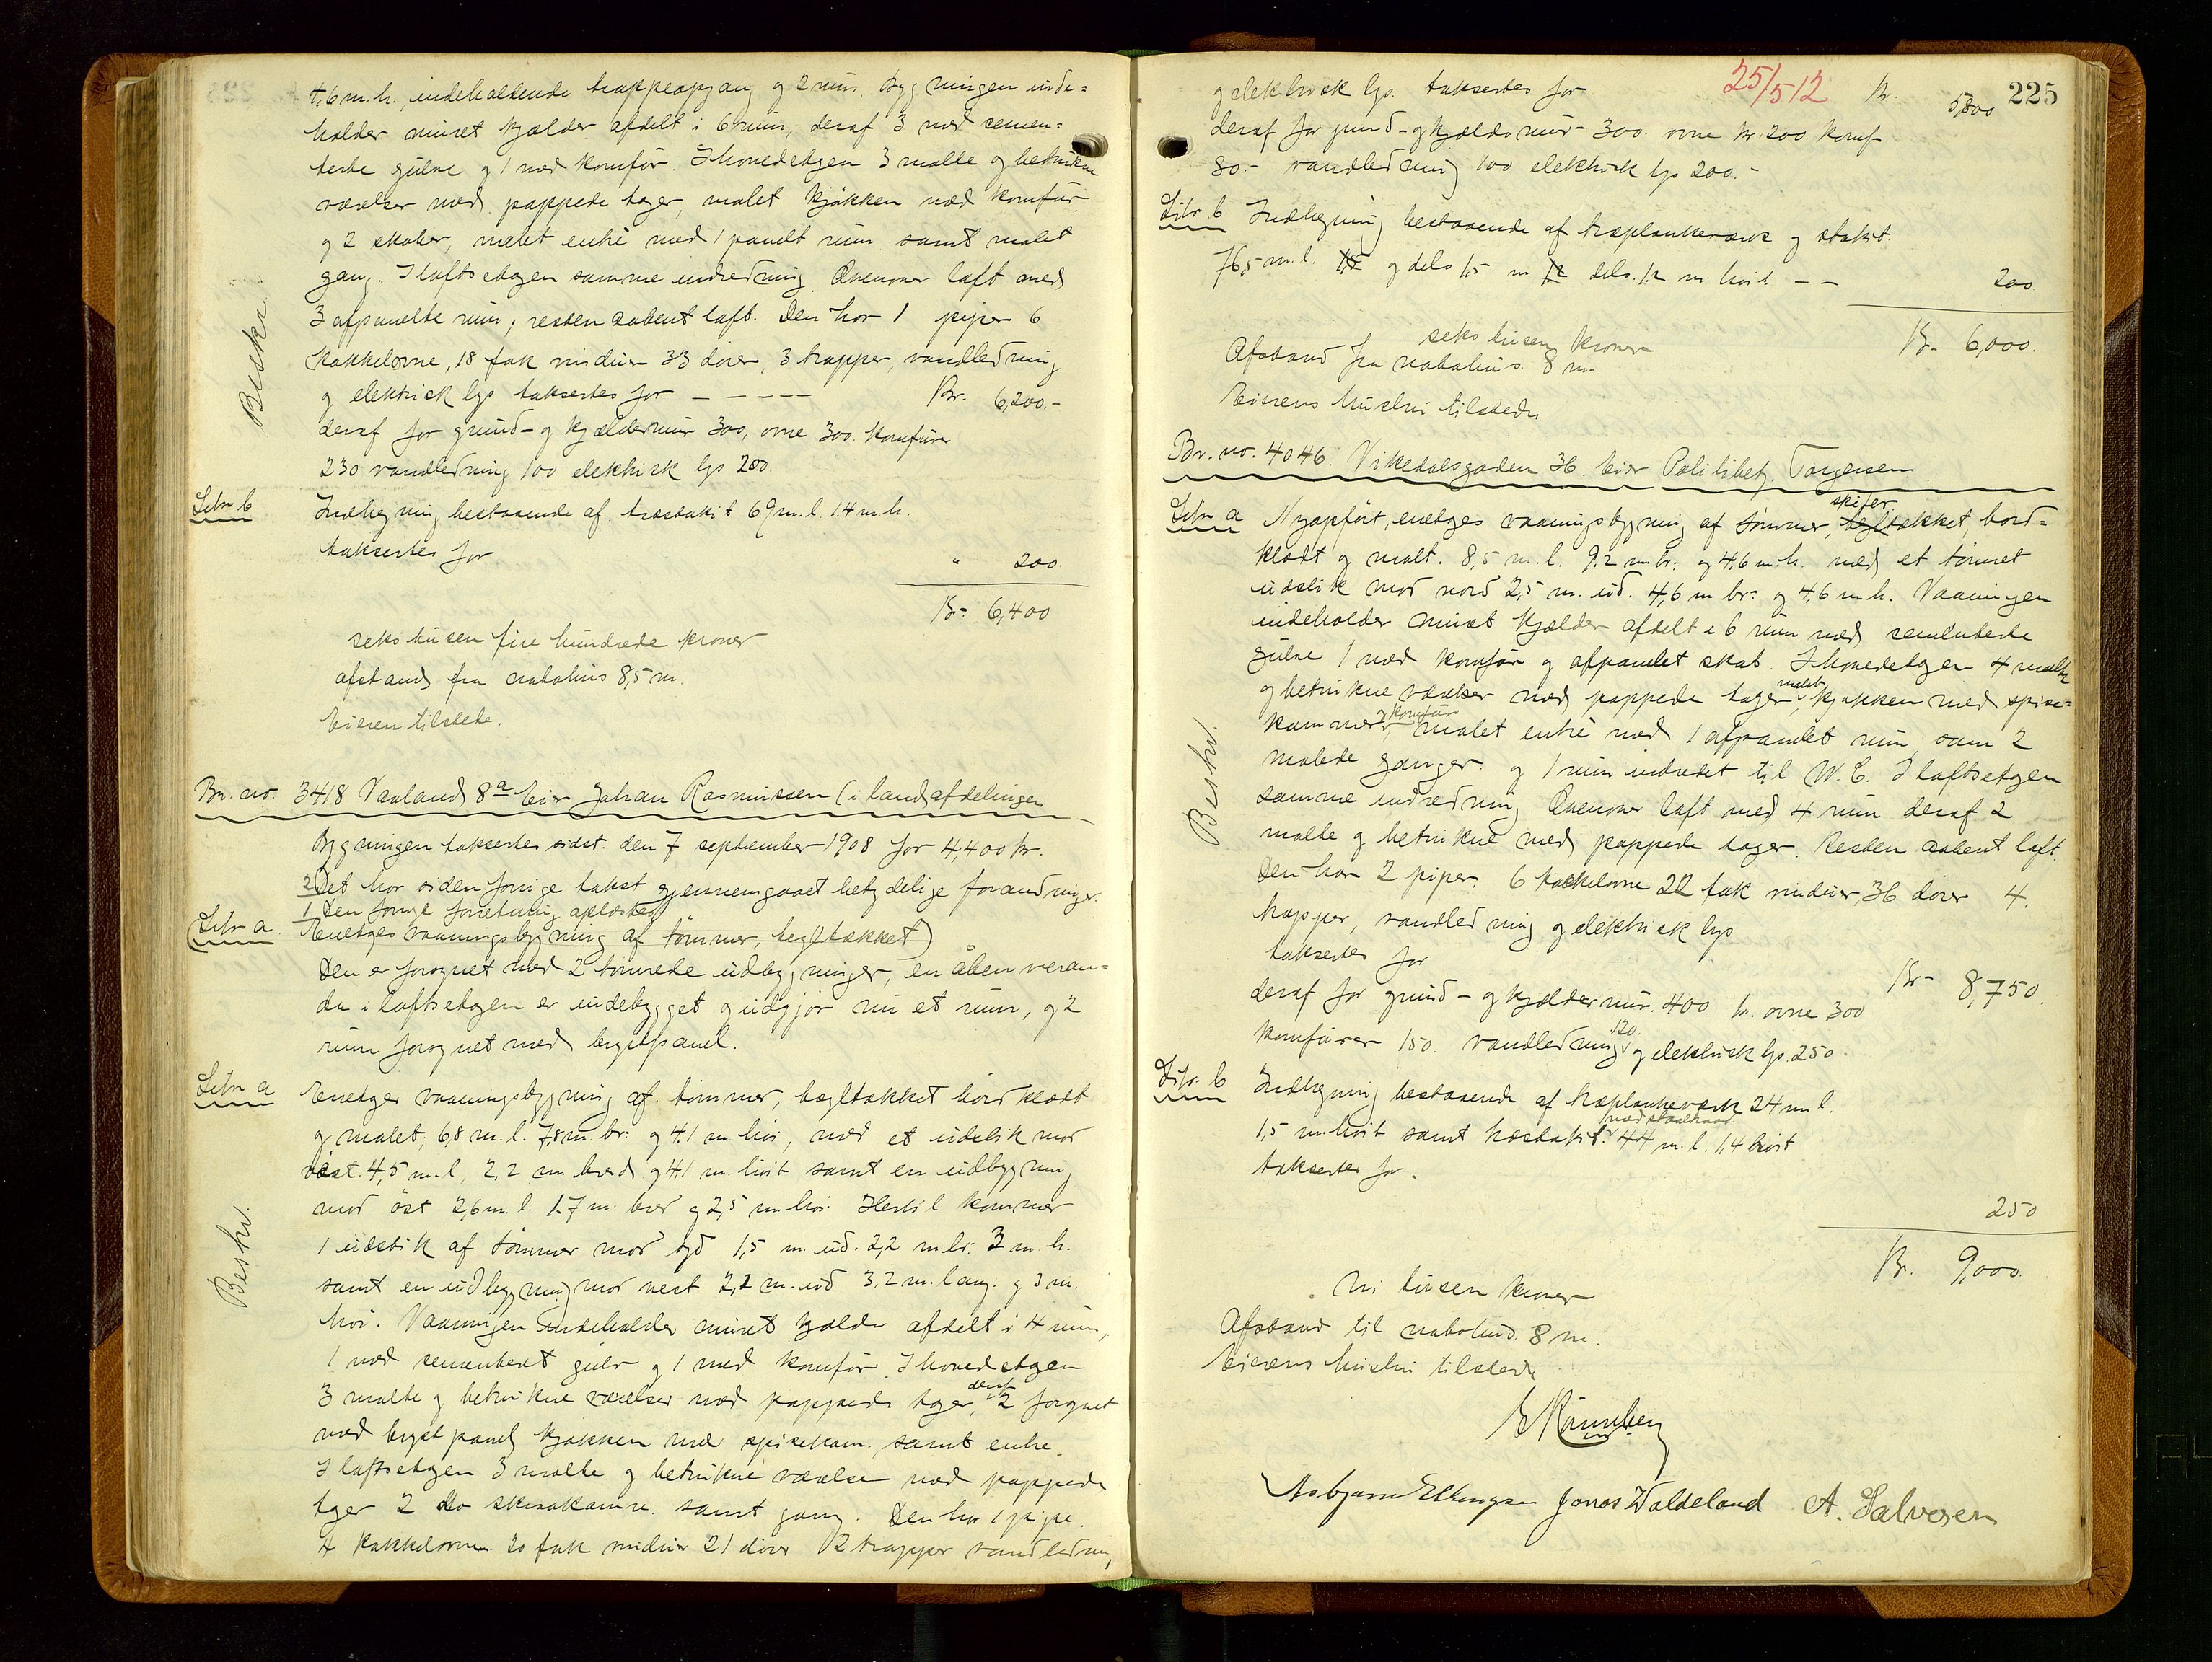 4,6 m.h. indeholdende trappeopgang og 2 rum. Bygningen inde=
holder muret kjælder afdelt i 6 rum, deraf 3 med cemen=
terte gulve og 1 med komfür. I hovedetagen 3 malte og betrukne
værelser med pappede tager, malet kjøkken med komfür
og 2 skaber, malet entré med 1 panelt rum samt malet
gang. I loftsetagen samme indredning. Ovenover loft med
3 afpanelte rum, resten aabent loft. Den har 1 piper 6
kakkelovne, 18 fak vinduer 33 dører, 3 trapper, vandledning
og elektrisk lys taksertes for - - - - - Kr. 6,200.-
deraf for grund- og kjældermur 300, ovne 300. komfürer
230 vandledning 100 elektrisk lys 200.
Beskr.
Litr b Indhegning bestaaende af træstakit 69 m.l. 1.4 m h.
taksertes for " 200.
Kr- 6,400
seks tusen fire hundrede kroner
afstand fra nabohus 8,5 m.
Eieren tilstede.
Br. no. 3418 Vaaland 8a Eier Johan Rasmussen (i landafdelingen
Bygningen taksertes sidst den 7 september 1908 for 4,400 kr.
2 Det har siden forrige takst gjennemgaaet betydelige forandringer.
1 Den forrige forretning oplæstes
(Litr a. Enetages vaaningsbygning af tømmer, tegltækket)
Den er forøgnet med 2 tømrede udbygninger, en åben veran=
da i loftsetagen er indebygget og udgjør nu et rum, og 2
rum forøgnet med brystpanel.
Litr a Enetages vaaningsbygning af tømmer, tægltækket bordklædt
og malet, 6,8 m.l. 7,8 m. br: og 4.1 m. høi, med et udstik mod
vest 4,5 m.l, 2,2 m. bred og 4,1 m. høit samt en udbygning
mod øst 2,6 m. l. 1.7 m. bred og 2,5 m. høi. Hertil kommer
1 udstik af tømmer mod syd 1,5 m. ud. 2,2 m br: 3 m. h.
samt en udbygning mod vest 2,2 m. ud 3,2 m. lang. og 3 m.
høi. Vaaningen indeholder muret kjælder afdelt i 4 rum,
1 med cementert gulv og 1 med komfür. I hovedetagen
3 malte og betrukne værelser med pappede tager, deraf 2 forøgnet
med brystpanel, kjøkken med spisekam. samt entre.
I loftsetagen 3 malte og betrukne værelser med pappede
tager 2 do skraakamre. samt gang. Den har 1 pipe.
4 kakkelovne. 20 fak vinduer 21 dører 2 trapper vandledning,
Beskr.
225
25/5 12
og elektrisk lys. taksertes for Kr. 5800
deraf for grund- og kjældermur- 300. ovne kr. 200. komf-
80.- vandledning 100 elektrisk lys 200.-
Litr. b Indhegning bestaaende af træplankeværk og stakit.
76,5 m. l. og dels 1,5 m dels 1.2 m. høit - - 200
Kr- 6,000.
seks tusen kroner
Afstand fra nabohus 8 m.
Eierens hustru tilstede
Br. no. 4046. Vikedalsgaden 36. Eier Politibetj. Torgersen
Litr a Nyopført, enetages vaaningsbygning af tømmer, skifer tegltækket, bord=
klædt og malt. 8,5 m. l. 9.2 m. br. og 4.6 m. h. med et tømret
udstik mod nord 2,5 m. ud. 4,6 m br: og 4,6 m h. Vaaningen
indeholder muret kjælder afdelt i 6 rum med cementerte
gulve 1 med komfür og afpanelet skab. I hovedetagen 4 malte
og betrukne værelser med pappede tager, malet kjøkken med spise=
kammer og komfür, malet entré med 1 afpanelet rum, sam 2
malede ganger. og 1 rum indredet til W. C. I loftsetagen
samme indredning Ovenover loft med 4 rum deraf 2
malte og betrukne med pappede tager. Resten aabent loft.
Den har 2 piper. 6 kackelovne 22 fak vinduer, 36 dører 4.
trapper, vandledning og elektrisk lys
taksertes for Kr- 8,750.
deraf for grund- og kjældermur. 400 kr. ovne 300
komfürer 150. vandledning 120. og elektrisk lys. 250.
Beskr.
Litr. b Indhegning bestaaende af træplankeværk 24 m l.
1,5 m. høit samt træstakit 44 m. l. 1,4 høit
taksertes for.
250
Kr. 9,000.
Ni tusen kroner
Afstand til nabohus. 8 m.
Eierens hustru tilstede
Jonas Waldeland A. Salvesen